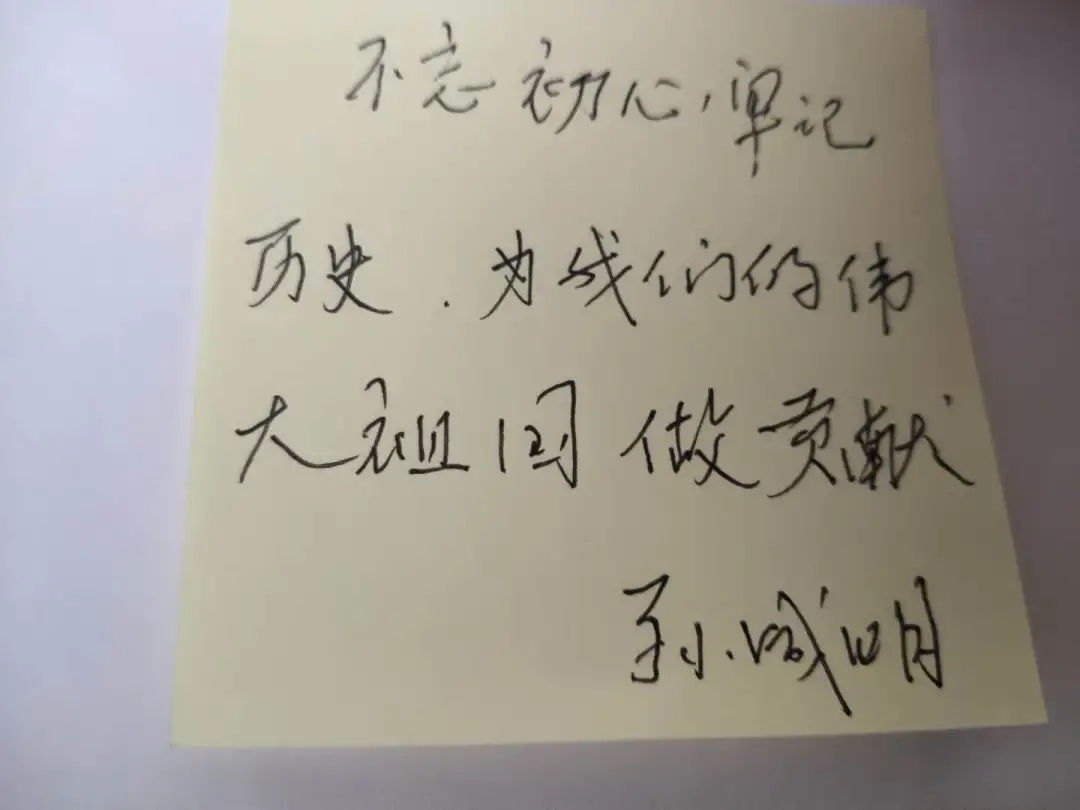 不忘初心,牢记
历史.为我们的伟
大祖国做贡献
孙诚明